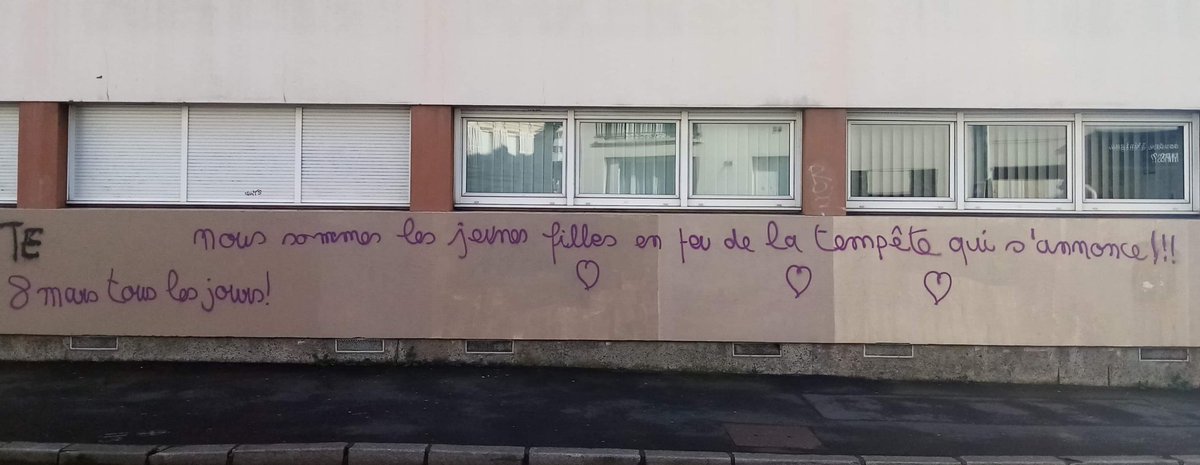 TE
nous sommes les jeunes filles en feu de la tempête qui s'annonce!!!
8 mars tous les jours!